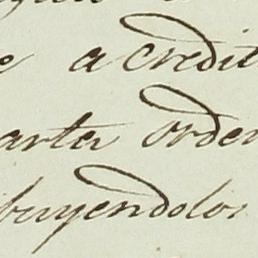 e acredit
arta orden
buyendolos